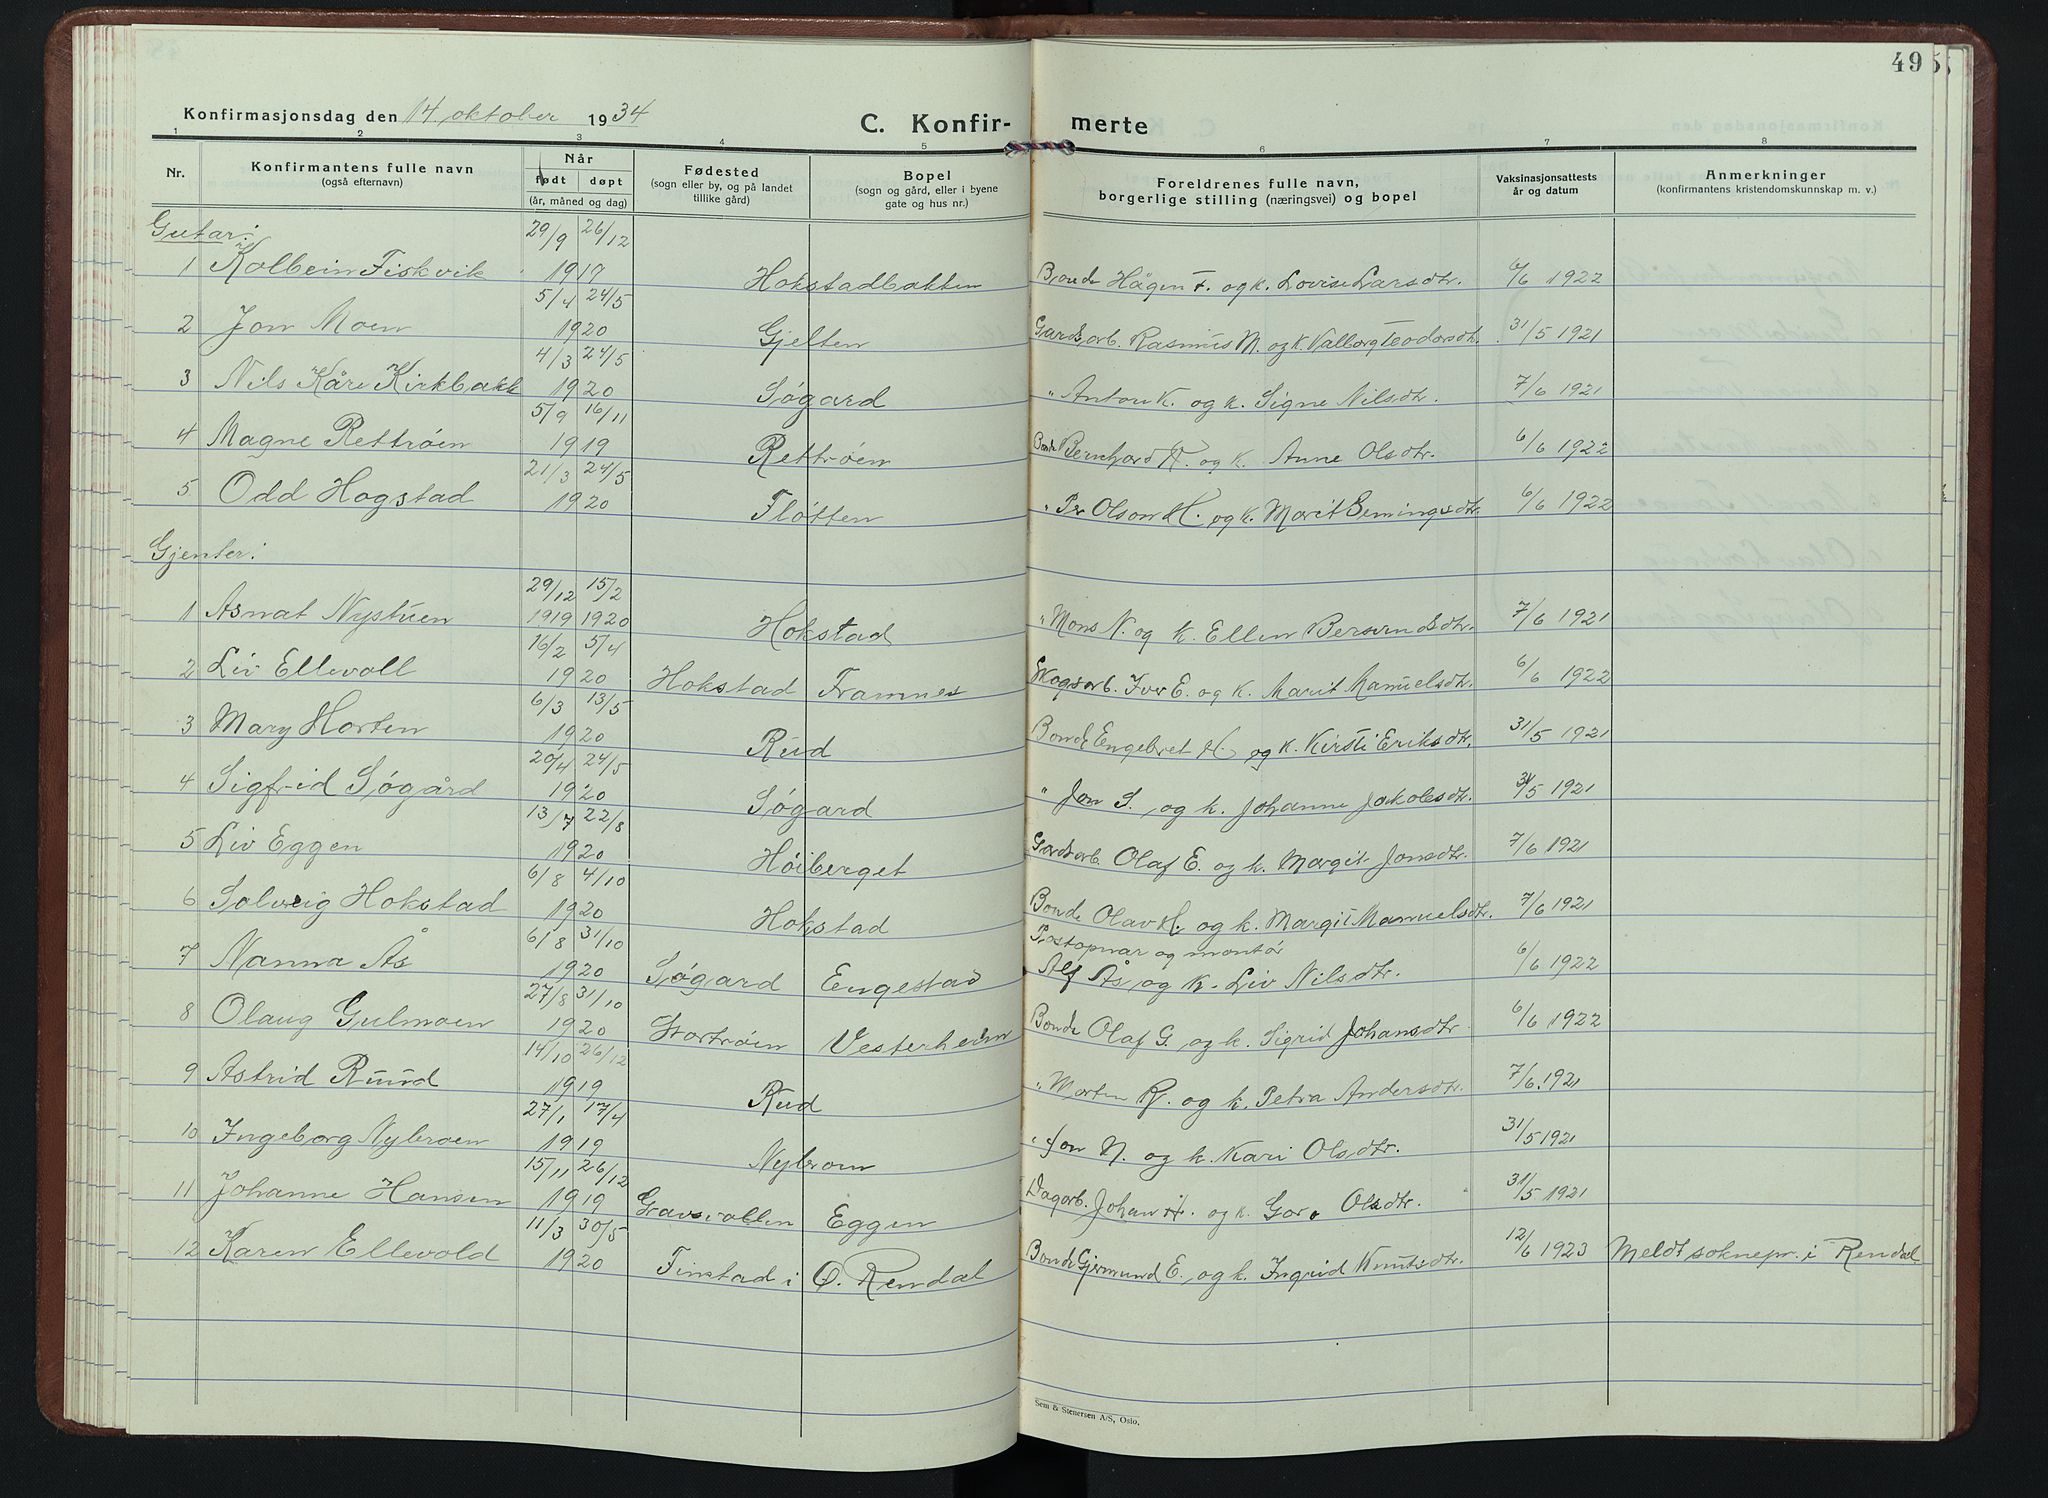 49
Konfirmasjonsdag den 14. oktober 1934
C. Konfirmerte
1 2 3 4 5 6 7 8
Nr.
Konfirmantens fulle navn
(også efternavn)
Når
født døpt
(år, måned og dag)
Fødested
(sogn eller by, og på landet
tillike gård)
Bopel
(sogn og gård, eller i byene
gate og hus nr.)
Foreldrenes fulle navn,
borgerlige stilling (næringsvei) og bopel
Vaksinasjonsattests
år og datum
Anmerkninger
(konfirmantens kristendomskunnskap m. v.)
Gutar:
29/9 26/12
1 Kolbein Fiskvik 1917 Hokstadbakken Bonde Hågen F. og k. Lovise Larsdtr. 6/6 1922
5/4 24/5
2 Jon Moen 1920 Gjelten Gardsarb. Rasmus M. og k. Valborg Teodorsdt. 31/5 1921
4/3 24/5
3 Nils Kåre Kirkbakk 1920 Søgard " Anton K. og k. Signe Nilsdtr. 7/6 1921
5/9 16/11
4 Magne Rettrøen 1919 Rettrøen Bonde Bernhard R. og k. Anne Olsdtr. 6/6 1922
21/3 24/5
5 Odd Hogstad 1920 Fløtten " Per Olson H. og k. Marit Semingsdtr. 6/6 1922
Gjenter:
29/12 15/2
1 Asnat Nystuen 1919 1920 Hokstad " Mons N. og k. Ellen Bersvendsdtr. 7/6 1921
16/2 5/4
2 Liv Ellevoll 1920 Hokstad Framnes Skogsarb. Iver E. og k. Marit Manuelsdtr. 6/6 1922
6/3 13/5
3 Mary Horten 1920 Rud Bonde Engebret H. og k. Kirsti Eriksdtr. 31/5 1921
20/4 24/5
4 Sigfrid Søgård 1920 Søgard " Jon S. og k. Johanne Jakobsdtr. 31/5 1921
13/7 22/8
5 Liv Eggen 1920 Høiberget Gardsarb. Olaf E. og k. Margit Jonsdtr. 7/6 1921
6/8 4/10
6 Solveig Hokstad 1920 Hokstad Bonde Olav H. og k. Margit Manuelsdtr. 7/6 1921
6/8 31/10 Postopnar og montør
7 Nanna Ås 1920 Søgard Engestad Alf Ås og k. Liv Nilsdtr. 6/6 1922
27/8 31/10
8 Olaug Gulmoen 1920 Stortrøen Vesterheim Bonde Olaf G. og k. Sigrid Johansdtr. 6/6 1922
14/10 26/12
9 Astrid Ruud 1919 Rud " Morten R. og k. Petra Andersdtr. 7/6 1921
27/1 17/4
10 Ingeborg Nybroen 1919 Nybroen " Jon N. og k. Kari Olsdtr. 31/5 1921
15/11 26/12
11 Johanne Hansen 1919 Gravsvollen Eggen Dagarb. Johan H. og k. Goro Olsdtr. 31/5 1921
11/3 30/5
12 Karen Ellevold 1920 Finstad i Ø. Rendal Bonde Gjermund E. og k. Ingrid Knutsdtr. 12/6 1923 Meldt soknepr. i Rendal
Sem & Stenersen A/S, Oslo.